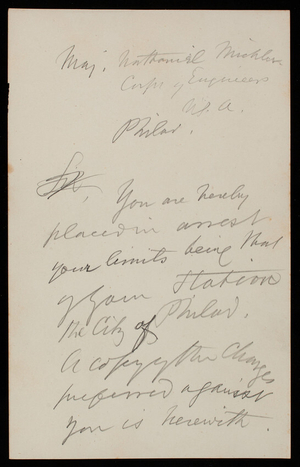 Maj. Nathaniel Michler
Corps of Engineers
U.S.A.
Philad.
Sir, You are hereby
placed in arrest
your limits being that
of your Station
the City of Philad.
A copy of the Charges
preferred against
you is herewith.